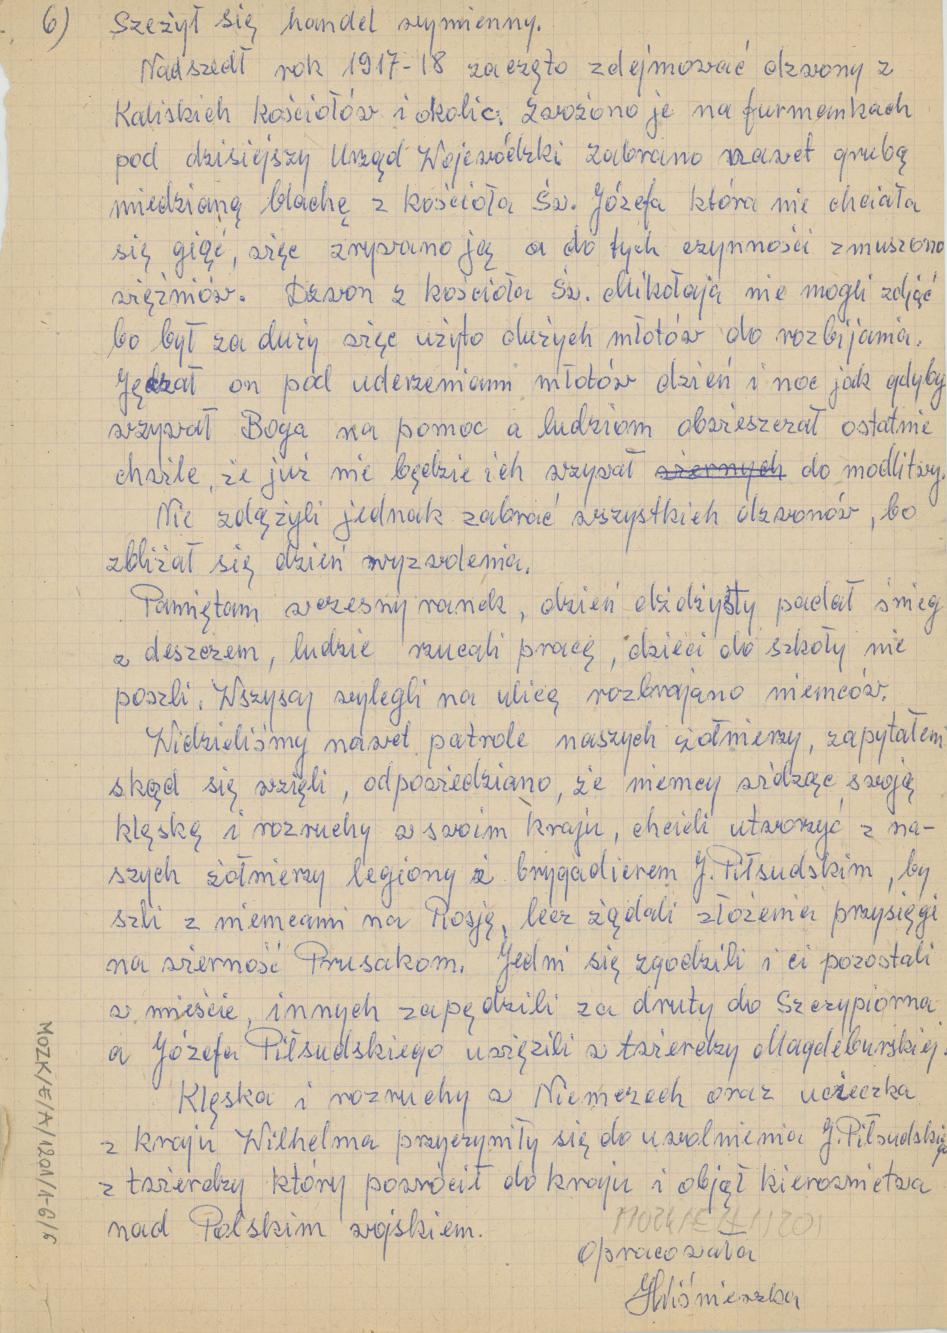 6) Szeżył się handel wymienny.
Nadszedł rok 1917-18 zaczęto zdejmować dzwony z
Kaliskich kościołów i okolic. Zwożono je na furmankach
pod dzisiejszy Urząd Wojewódzki zabrano nawet grubą
miedzianą blachę z kościoła Św. Józefa która nie chciała
się giąć, więc zrywano ją a do tych czynności zmuszono
więźniów. Dzwon z kościoła Św. Mikołaja nie mogli zdjąć
bo był za duży więc użyto dużych młotów do rozbijania.
Jęczał on pod uderzeniami młotów dzień i noc jak gdyby
wzywał Boga na pomoc a ludziom obwieszczał ostatnie
chwile, że już nie będzie ich wzywał wiernych do modlitwy.
Nie zdążyli jednak zabrać wszystkich dzwonów, bo
zbliżał się dzień wyzwolenia.
Pamiętam wczesny ranek, dzień dżdżysty padał śnieg
z deszczem, ludzie rzucali pracę, dzieci do szkoły nie
poszli. Wszyscy wylegli na ulicę rozbrajano niemców.
Widzieliśmy nawet patrole naszych żołnierzy, zapytałem
skąd się wzięli, odpowiedziano, że niemcy widząc swoją
klęskę i rozruchy w swoim kraju, chcieli utworzyć z na-
szych żołnierzy legiony z brygadierem J. Piłsudskim, by
szli z niemcami na Rosję, lecz żądali złożenia przysięgi
na wierność Prusakom. Jedni się zgodzili i ci pozostali
w mieście, innych zapędzili za druty do Szczypiorna
a Józefa Piłsudskiego uwięzili w twierdzy Magdeburskiej.
Klęska i rozruchy w Niemczech oraz ucieczka
z kraju Wilhelma przyczyniły się do uwolnienia J. Piłsudskiego
z twierdzy który powrócił do kraju i objął kierownictwa
nad Polskim wojskiem.
Opracowała
HWiśniewska
MOZK/E/A/1201/1-6/6